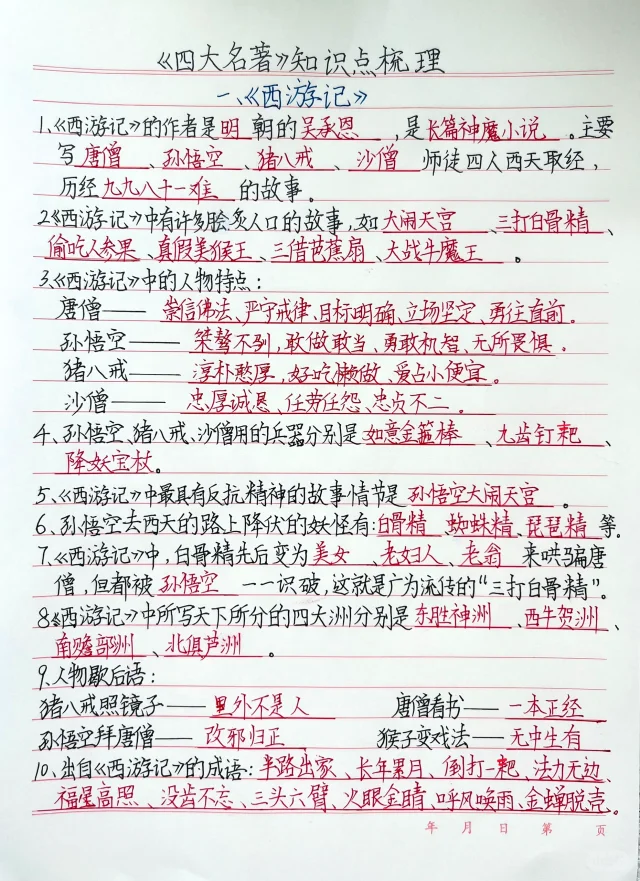 《四大名著》知识点梳理
一、《西游记》
1、《西游记》的作者是明朝的吴承恩,是长篇神魔小说。主要
写唐僧、孙悟空、猪八戒、沙僧师徒四人西天取经,
历经九九八十一难的故事。
2、《西游记》中有许多脍炙人口的故事,如大闹天宫、三打白骨精、
偷吃人参果、真假美猴王、三借芭蕉扇、大战牛魔王。
3、《西游记》中的人物特点:
唐僧——崇信佛法、严守戒律、目标明确、立场坚定、勇往直前。
孙悟空——桀骜不驯,敢做敢当、勇敢机智、无所畏惧。
猪八戒——淳朴憨厚,好吃懒做、爱占小便宜。
沙僧——忠厚诚恳、任劳任怨、忠贞不二。
4、孙悟空、猪八戒、沙僧用的兵器分别是如意金箍棒、九齿钉耙、
降妖宝杖。
5、《西游记》中最具有反抗精神的故事情节是孙悟空大闹天宫。
6、孙悟空去西天的路上降伏的妖怪有:白骨精、蜘蛛精、琵琶精等。
7、《西游记》中,白骨精先后变为美女、老妇人、老翁来哄骗唐
僧,但都被孙悟空一一识破,这就是广为流传的“三打白骨精”。
8《西游记》中所写天下所分的四大洲分别是东胜神洲、西牛贺洲、
南赡部洲、北俱芦洲。
9、人物歇后语:
猪八戒照镜子——里外不是人 唐僧看书——一本正经
孙悟空拜唐僧——改邪归正 猴子变戏法——无中生有
10、出自《西游记》的成语:半路出家、长年累月、倒打一耙、法力无边、
福星高照、没齿不忘、三头六臂、火眼金睛、呼风唤雨、金蝉脱壳。
年 月 日 第 页